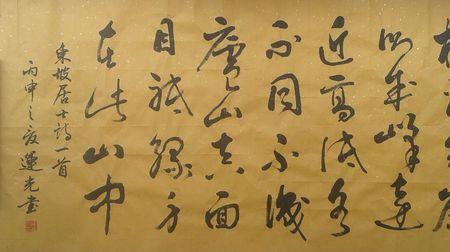 側成峰遠
近高低各
不同不識
廬山真面
目祇緣身
在此山中
東坡居士詩一首
丙申之夏蓮光書